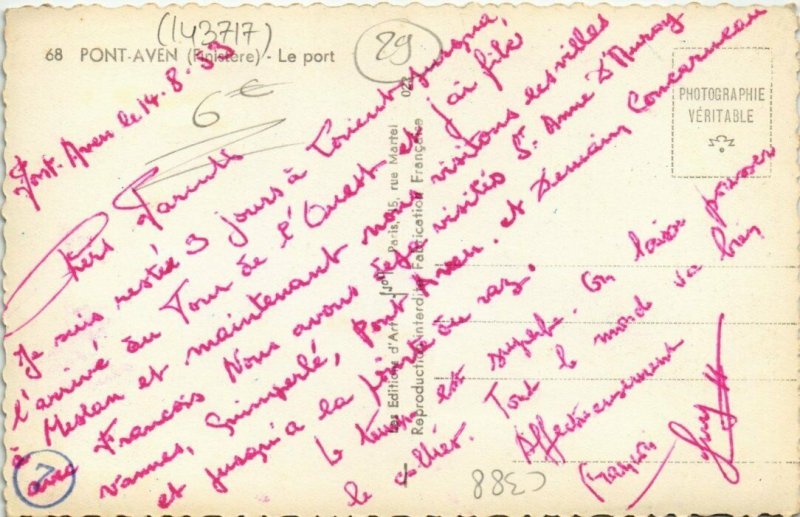 (143717)
68 PONT-AVEN (Finistère) - Le port
29
6 €
PHOTOGRAPHIE
VÉRITABLE
Les Editions d'Art Paris, 15, rue Martel
Reproduction interdite Fabrication Française
Pont-Aven le 14.8.53
Chers Parents
Je suis restée 3 jours à Lorient jusqua,
l'arrivé du Tour de l'Ouest et j'ai filé
à Meslan et maintenant nous visitons les villes
avec François Nous avons déjà visités St Anne D'Auray
Vannes, Quimperlé, Pont Aven. et Demain Concarneau
et jusqu'à la pointe du raz.
le temps est superbe. On laisse pousser
le collier. Tout le monde va bien
Affectueusement
François Guy
C388